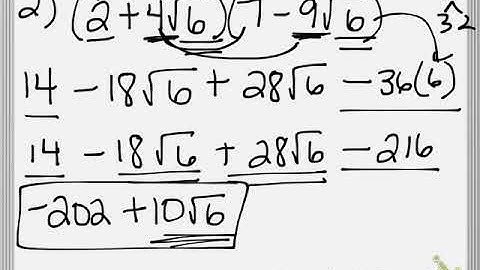 2) (2 + 4√6)(7 - 9√6)
14 - 18√6 + 28√6 - 36(6)
14 - 18√6 + 28√6 - 216
-202 + 10√6